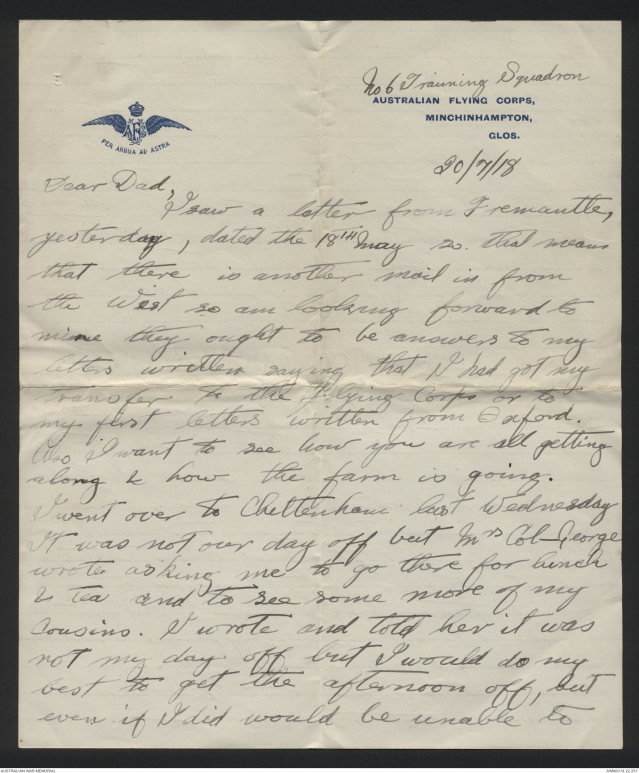 No 6 Training Squadron
AUSTRALIAN FLYING CORPS,
MINCHINHAMPTON,
GLOS.
AFC
PER ARDUA AD ASTRA
20/7/18
Dear Dad,
I saw a letter from Fremantle,
yesterday, dated the 18TH May so that means
that there is another mail in from
the West so am looking forward to
mine they ought to be answers to my
letters written saying that I had got my
transfer to the Flying Corps or to
my first letters written from Oxford.
Also I want to see how you are all getting
along & how the farm is going.
I went over to Cheltenham last Wednesday
It was not our day off but Mrs Col-George
wrote asking me to go there for lunch
& tea and to see some more of my
cousins. I wrote and told her it was
not my day off but I would do my
best to get the afternoon off, but
even if I did would be unable to
AUSTRALIAN WAR MEMORIAL